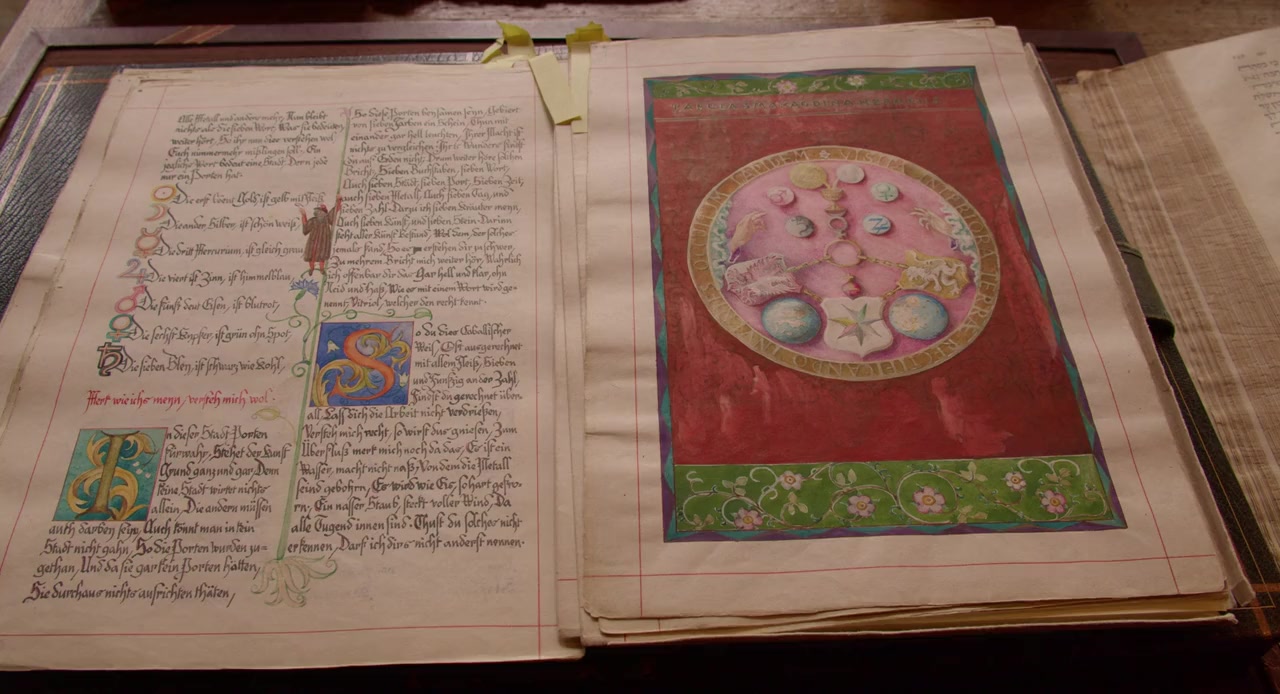 Alle Metall und andere mehr, Nun bleibt
nichts als die sieben Wort, War sie bedeuten
weiter hört, So ihr nun dies verstehen wol
Euch nimmermehr misslingen soll. Ein
jegliche Wort bedeut eine Stadt, Der n jede
nur ein Porten hat.
Die erst bedeut Gold, ist gelb
Die ander, Silber, ist schön weiß,
Die dritt Mercurium, ist gleich grau
Die viert ist Zinn, ist himmelblau,
Die fünft deut Eisen, ist blutrot,
Die sechst Kupfer, ist grün ohn Spot,
Die sieben Bley, ist schwarz wie Kohl,
Merk wie ichs menn, versteh mich wol.
In dieser Stadt Porten
fürwahr, Stehet der Kunst
Grund ganz und gar, Denn
keine Stadt wirket nichts
allein, Die andern müssen
auch darbey sein, Auch konnt man in kein
Stadt nicht gahn, So die Porten wurden zu=
gethan, Und da sie gar kein Porten hätten,
Sie durchaus nichts ausrichten thäten,
So diese Porten beysamen seyn, Gebiert
von sieben Farben ein Schein, Thun mit
einander gar hell leuchten, Ihrer Macht ist
nichts zu vergleichen, Ihr Wunder
du auf Erden nicht, Drum weiter hör
Bricht, Sieben Buchstaben, sieben Wort,
Auch sieben Städt, sieben Port, Sieben Zeit,
auch sieben Metall, Auch sieben Tag, und
sieben Zahl. Darzu ich sieben Kräuter menn,
Auch sieben Kunst, und sieben Stein. Darinn
steht aller Künst Bestand, Wol dem, der solches
jemals fand, So er verstehen dir zu schwer,
Zu mehrem Bricht mich weiter hör, Wahrlich
ich offenbar dir das Gar hell und klar, ohn
Neid und Haß, Wie es mit einem Wort wird ge-
nennt, Vitriol, welcher den recht kennt.
So du dies Caballischer
Weis, Oft ausgerechnet
mit allem Fleiß, Sieben
und Funfzig an der Zahl,
Findst du gerechnet über-
all, Lass dich die Arbeit nicht verdrießen,
Versteh mich recht, so wirst dus gniesen, Zum
Überfluß merk mich noch da das, Es ist ein
Wasser, macht nicht naß, Von dem die Metall
seind gebohrn, Es wird wie Eis, so hart gefro-
rn, Ein nasser Staub, steckt voller Wind, Da
alle Tugend innen sind. Thust du solches nicht
erkennen, Darf ich dirs nicht anderst nennen.
VISITA INTERIORA TERRE RECTIFICANDO INVENIES OCCULTUM LAPIDEM